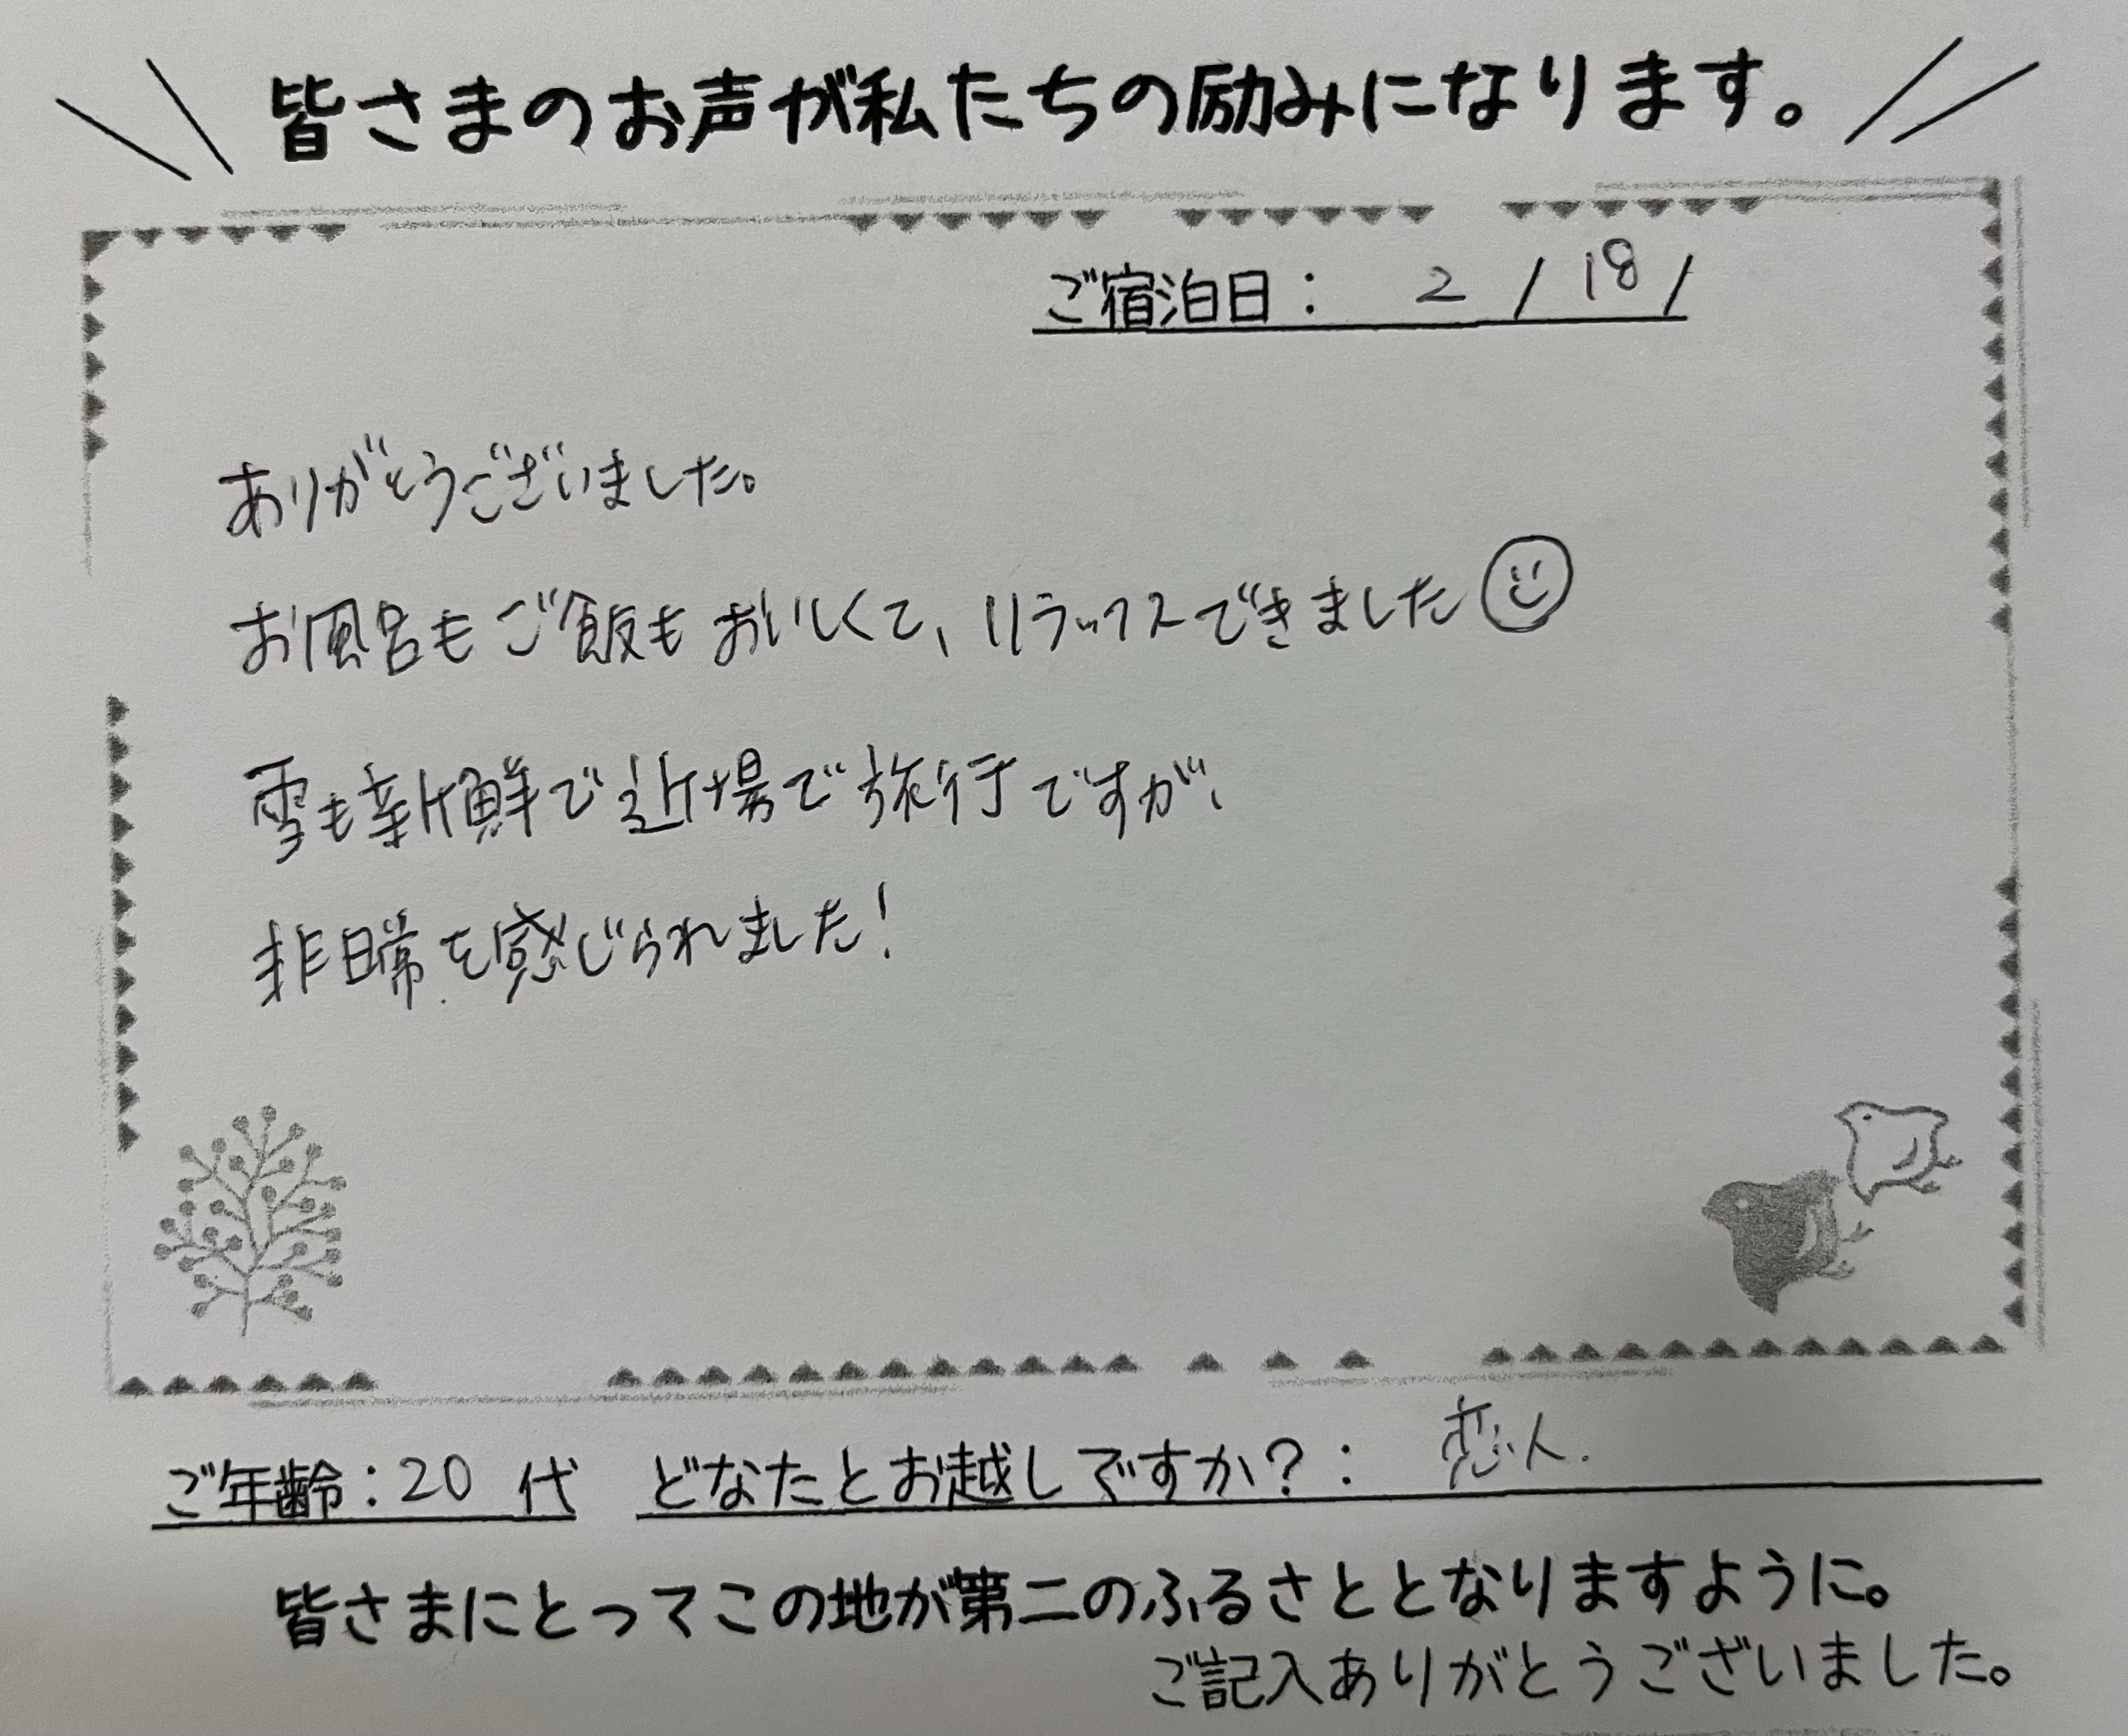 皆さまのお声が私たちの励みになります。
ご宿泊日： 2 / 18 /
ありがとうございました。
お風呂もご飯もおいしくて、リラックスできました
雪も新鮮で近場で旅行ですが、
非日常を感じられました！
ご年齢：20 代 どなたとお越しですか？： 恋人.
皆さまにとってこの地が第二のふるさととなりますように。
ご記入ありがとうございました。